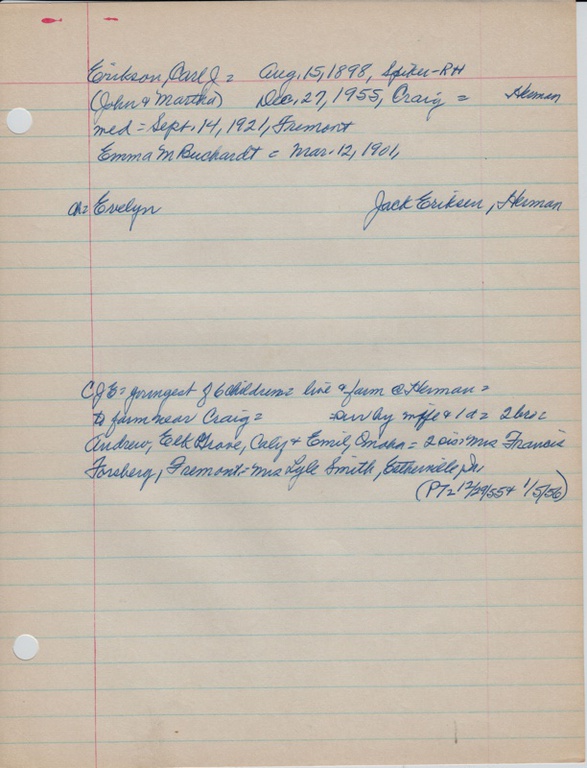 Erikson, Carl J = Aug. 15, 1898, Spiker-RH
(John & Martha) Dec. 27, 1955, Craig = Herman
med = Sept. 14, 1921, Fremont
Emma M Buchardt = Mar. 12, 1901,
ch = Evelyn Jack Eriksen, Herman
CJE = youngest of 6 children = live & farm @ Herman =
to farm near Craig = sur by wife & 1 d = 2 bro =
Andrew, Elk Grove, Caly & Emil, Omaha = 2 sis = Mrs Francis
Forsberg, Fremont = Mrs Lyle Smith, Estherville,
(PT = 12/29/55 & 1/5/56)